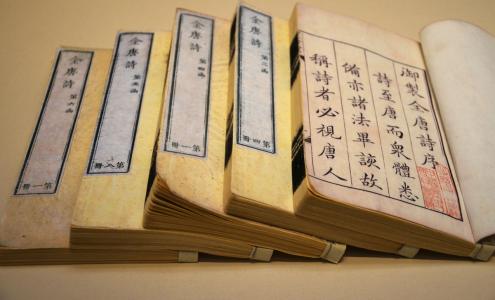 御製全唐詩序
詩至唐而衆體悉
備亦諸法畢該故
稱詩者必視唐人
全唐詩
第四冊
全唐詩 第四函
第一冊
全唐詩 第五函
第八冊
全唐詩 第六函
第一冊